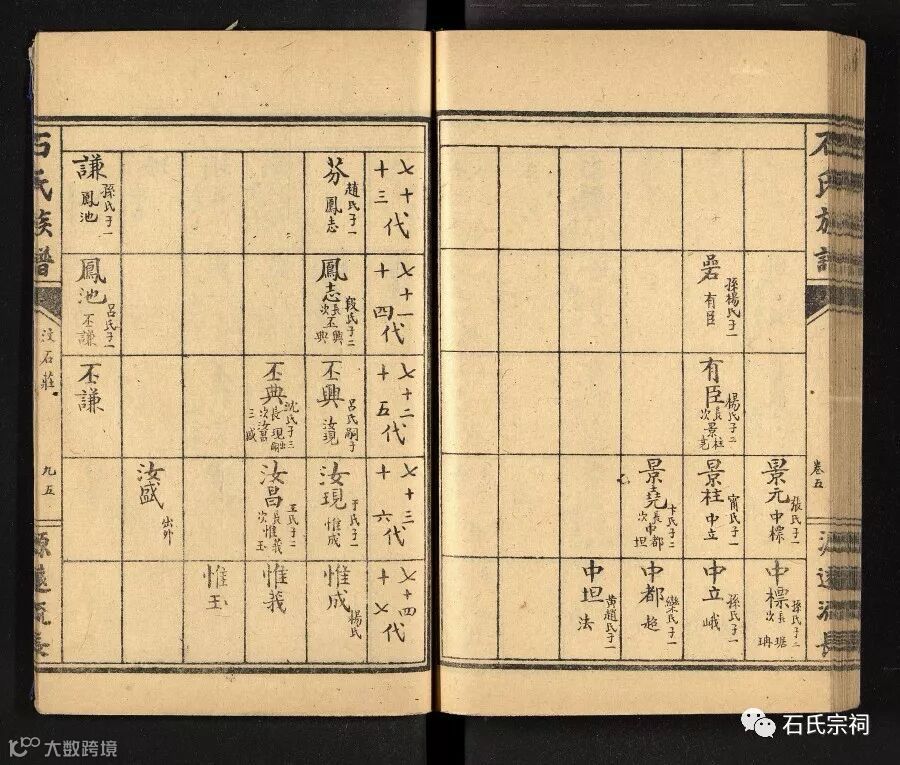 石氏族譜
卷五
源遠流長
有臣
孫楊氏子一
有臣
楊氏子二
長景柱
次景堯
景元
張氏子一
中標
景柱
甯氏子一
中立
景堯
卞氏子二
長中都
次中坦
中標
孫氏子二
長琚
次珃
中立
孫氏子一
峨
中都
欒氏子一
超
中坦
黄趙氏子一
法
七十代
十三
七十一代
十四
七十二代
十五
七十三代
十六
七十四代
十七
芬
趙氏子一
鳳志
鳳志
段氏子二
長丕興
次丕典
丕興
呂氏嗣子
汝現
汝現
于氏子一
惟成
惟成
楊氏
丕典
沈氏子三
長汝現出嗣
次汝昌
三汝盛
汝昌
王氏子二
長惟義
次惟玉
惟義
惟玉
汝盛
出外
謙
孫氏子一
鳳池
鳳池
呂氏子一
丕謙
丕謙
石氏族譜
汶石莊
九五
源遠流長
石氏宗祠
大数跨境